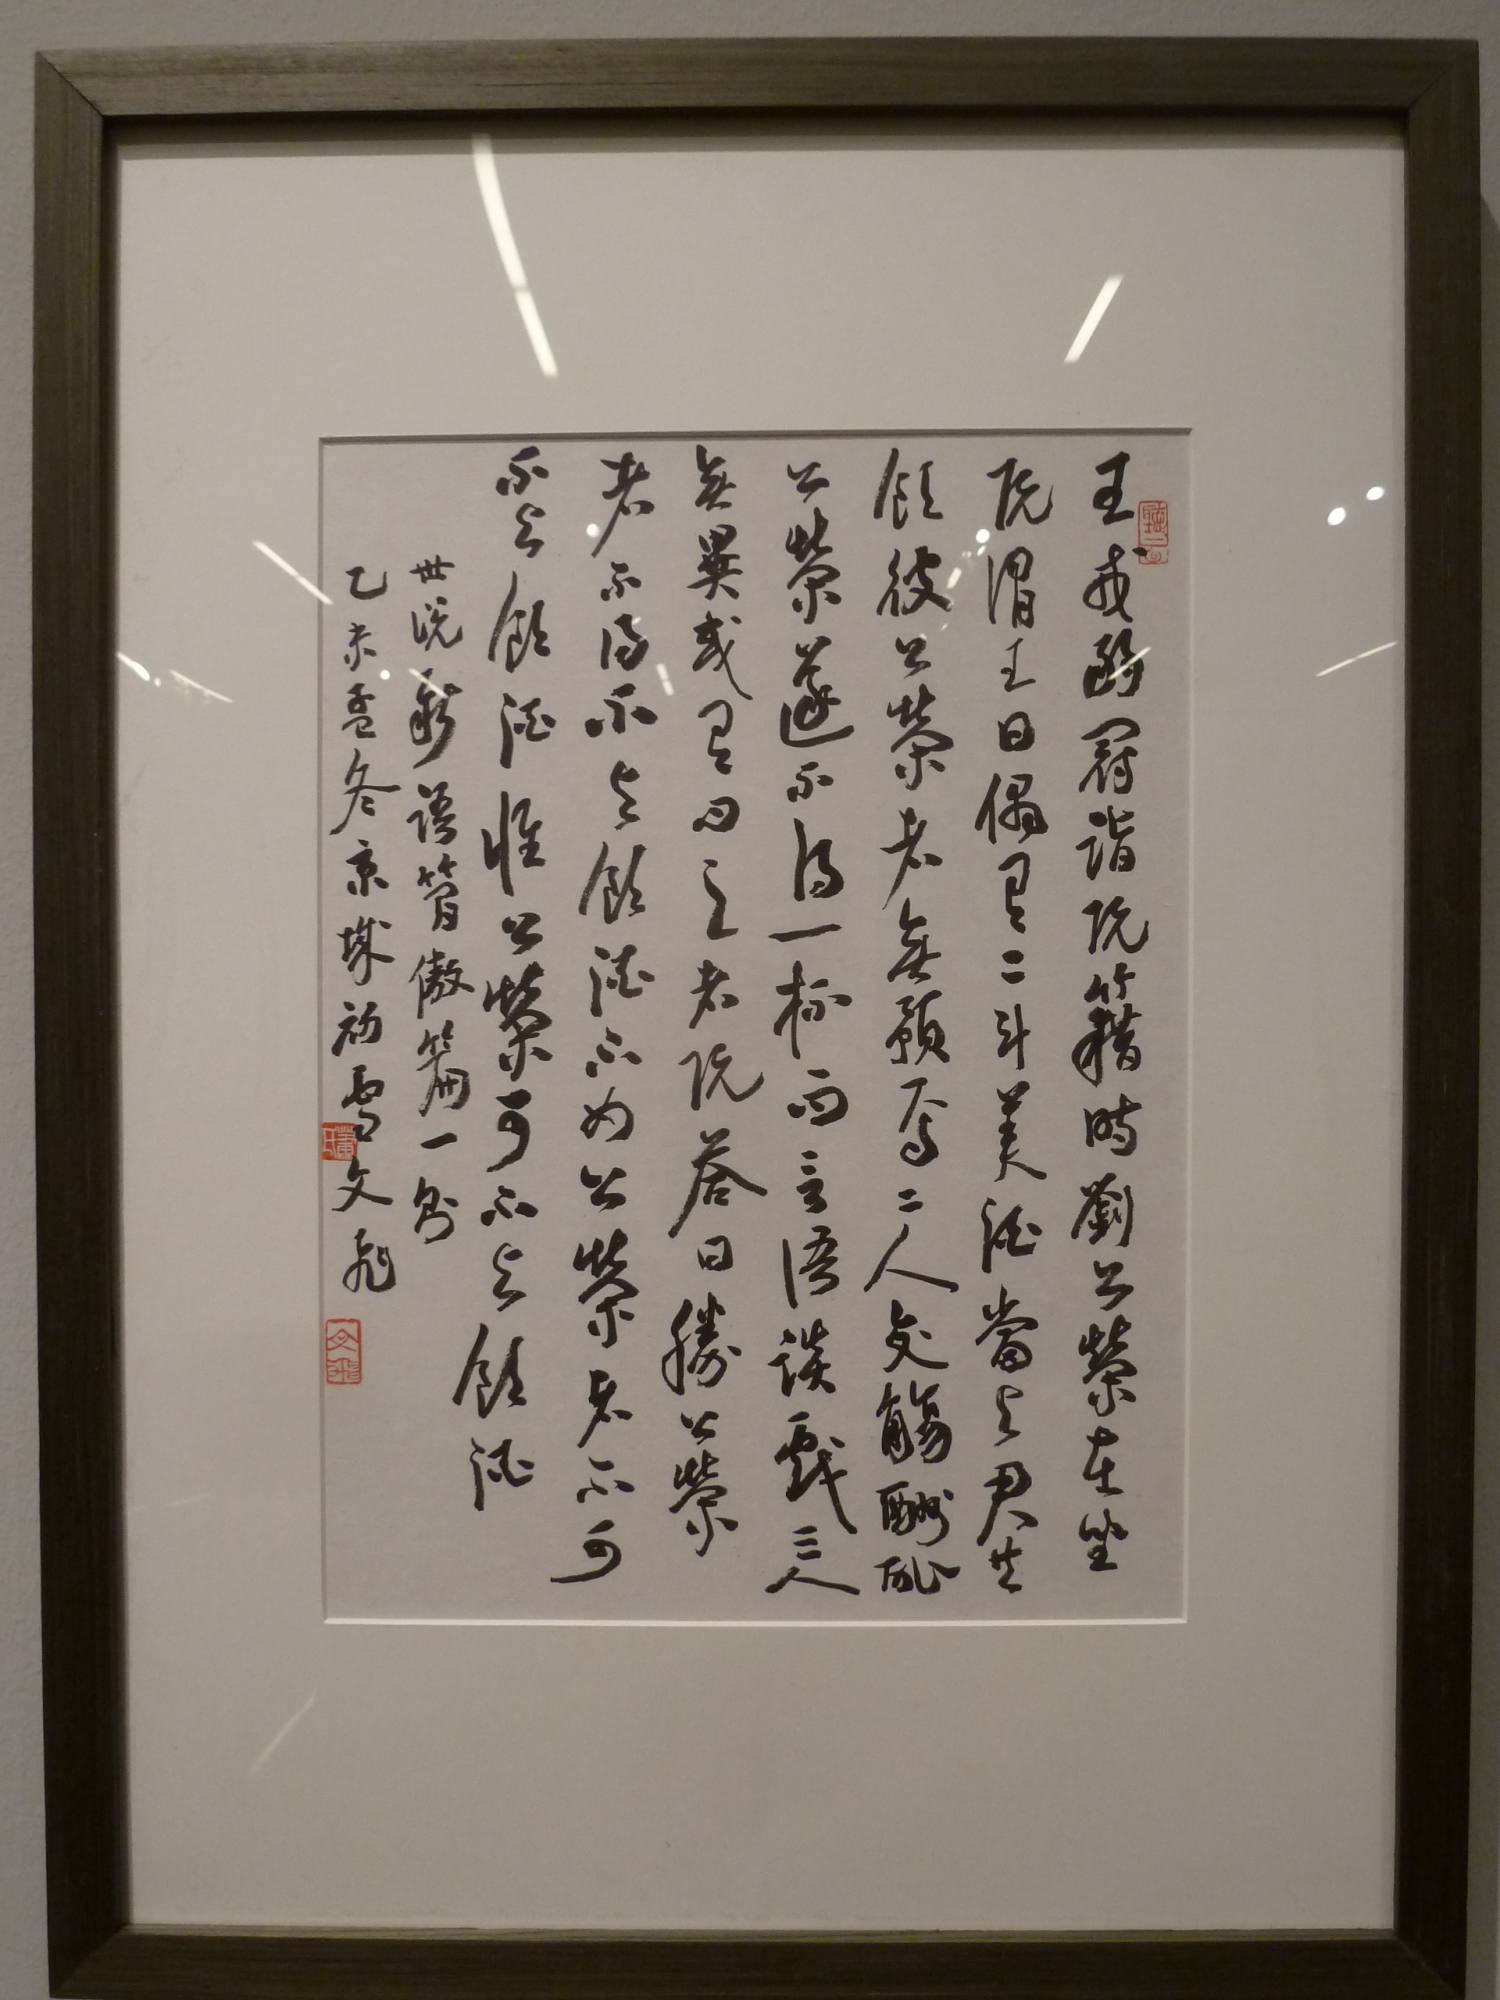 王戎弱冠詣阮籍時劉公榮在坐
阮謂王曰偶有二斗美酒當與君共
飲彼公榮者無預焉二人交觴酬酢
公榮遂不得一桮而言語談戲三人
無異或有問之者阮荅曰勝公榮
者不得不與飲酒不如公榮者不可
不與飲酒惟公榮可不與飲酒
世説新語簡傲篇一則
乙未孟冬京城初雪文飛
文飛